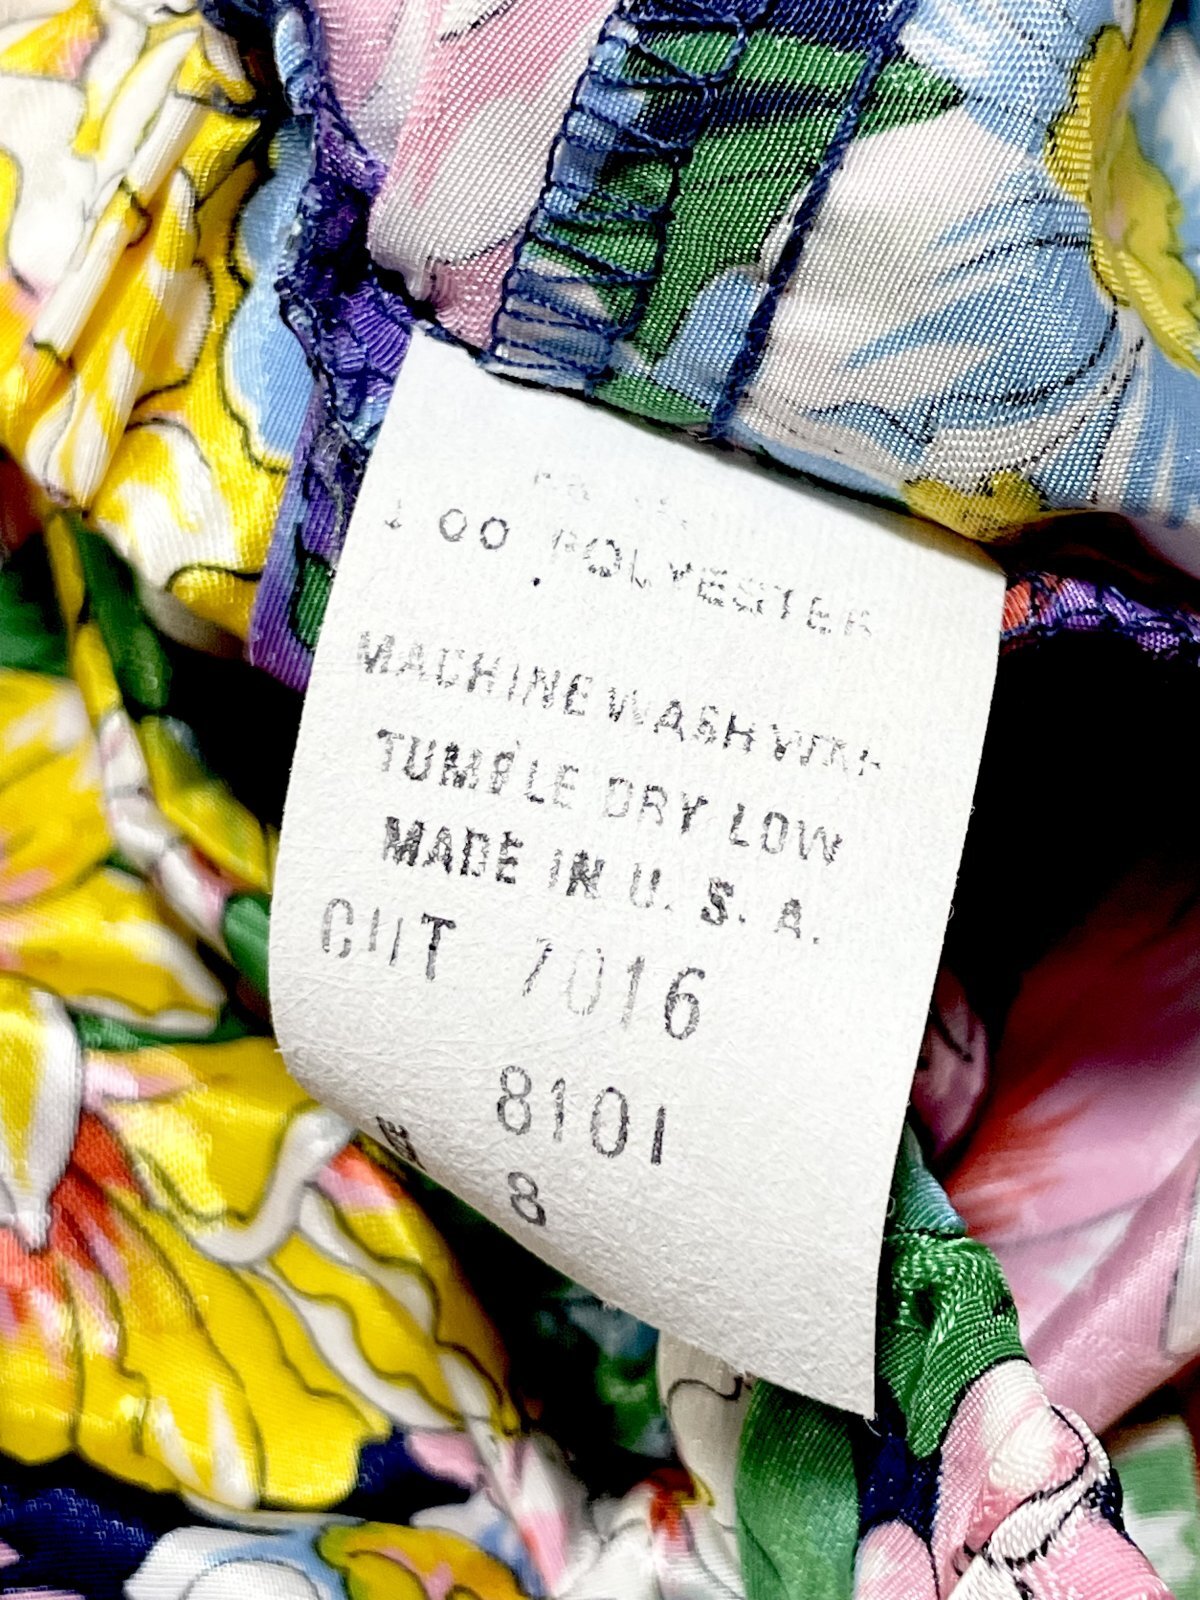 100 POLYESTER
MACHINE WASH WRM
TUMBLE DRY LOW
MADE IN U. S. A.
CUT 7016
8101
8